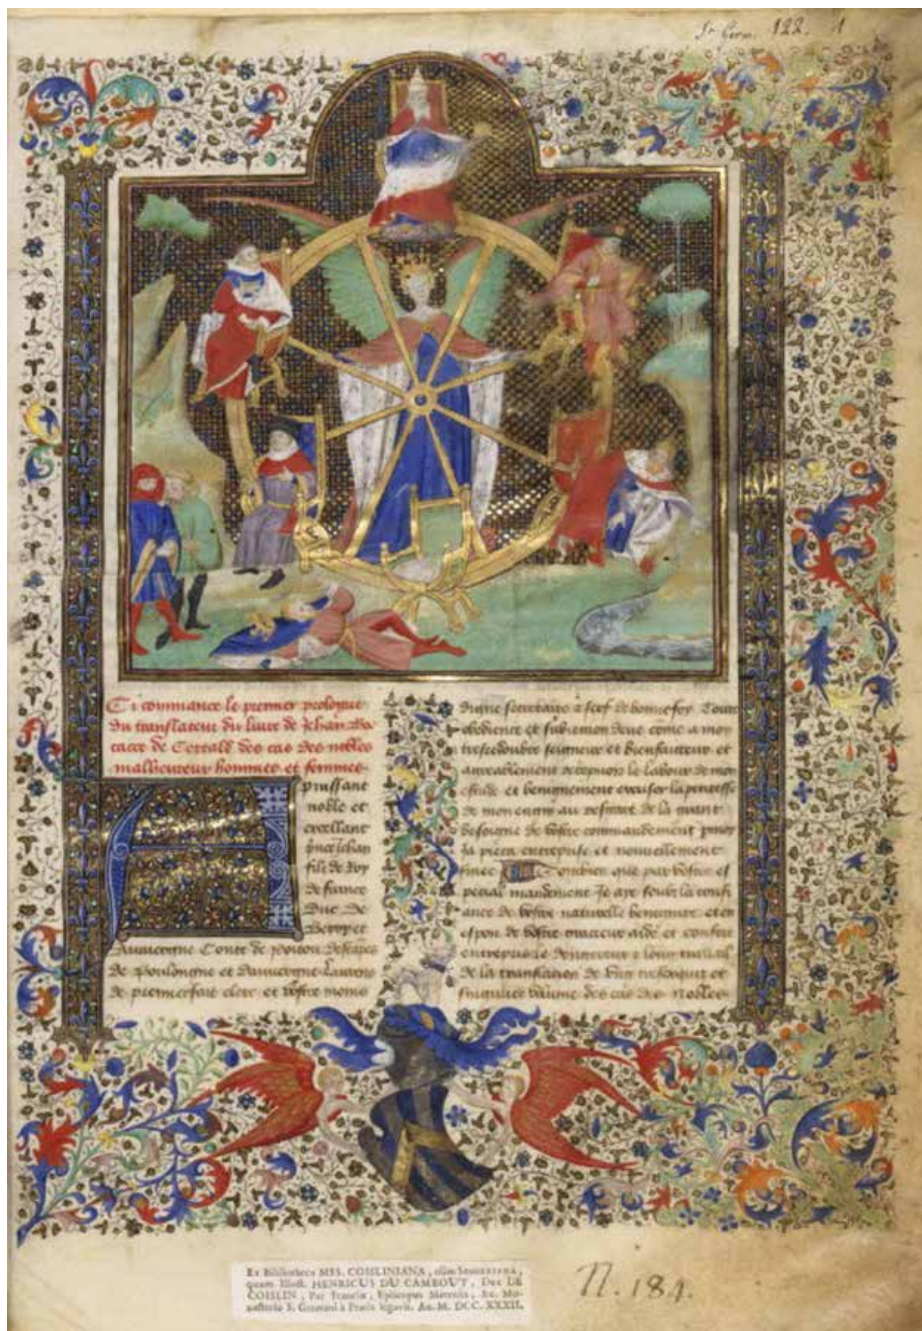 St Germ. 122. 1
Ci commance le premier prologue
du translateur du livre de Jehan Bo
cacce de Certald des cas des nobles
malheureux hommes et femmes
puissant
noble et
excellant
prince Jehan
filz de Roy
de france
Duc de
Berry et
Dauvergne Conte de poitou destapes
de Boulongne et Dauvergne Laurens
de premierfait clerc et vostre moins
digne secretaire et serf de bonne foy Toute
obedience et subiection deue come a mon
tresredoubte seigneur et bienfaiteur et
agreablement recevoir le labour de mon
estude et benignement excuser la petitesse
de mon engin au regard de la grant
besoigne de vostre commandement pieca
entreprise et nouvellement
finee Combien que par vostre es
pecial mandement Je aye soubz la confi
ance de vostre naturelle benignite et en
espoir de vostre gracieux aide et confort
entrepris le dangereux et long travail
de la translation de
singulier volume des cas des nobles
Ex Bibliotheca MSS. COISLINIANA, olim Segueriana,
quam Illust. HENRICUS DU CAMBOUT, Dux DE
COISLIN, Par Franciæ, Episcopus Metensis, &c. Mo-
nasterio S. Germani à Pratis legavit. An. M. DCC. XXXII.
N. 184.